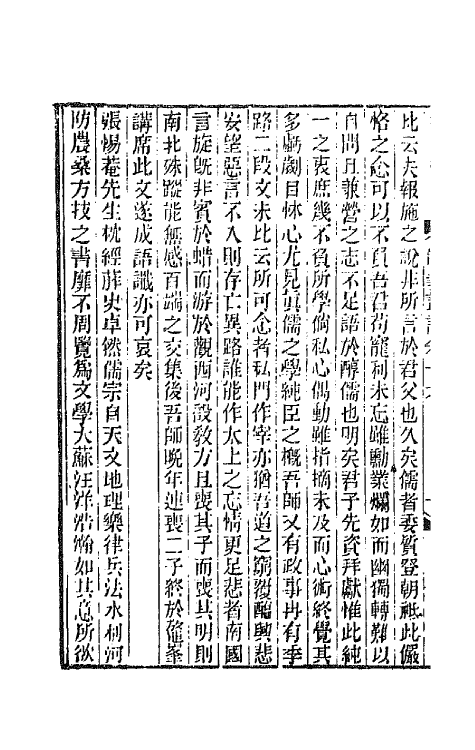 比云夫報施之說非所言於君父也久矣儒者委質登朝祗此儼
恪之念可以不負吾君苟寵利未忘雖勳業爛如而幽獨轉難以
自問且兼營之志不足語於醇儒也明矣君子先資拜獻惟此純
一之衷庶幾不負所學倘私心偶動雖指摘未及而心術終覺其
多虧劌目怵心尤見眞儒之學純臣之槪吾師又有政事冉有季
路二段文未比云所可念者私門作宰亦猶吾道之窮覆醢興悲
安望惡言不入則存亡異路誰能作太上之忘情更足悲者南國
言旋旣非賓於蜡而游於觀西河設敎方且喪其子而喪其明則
南北殊蹤能無感百端之交集後吾師晩年連喪二子終於龍峯
講席此文遂成語讖亦可哀矣
張惕菴先生枕經葄史卓然儒宗自天文地理樂律兵法水利河
防農桑方技之書靡不周覽爲文學大蘇汪洋浩瀚如其意所欲